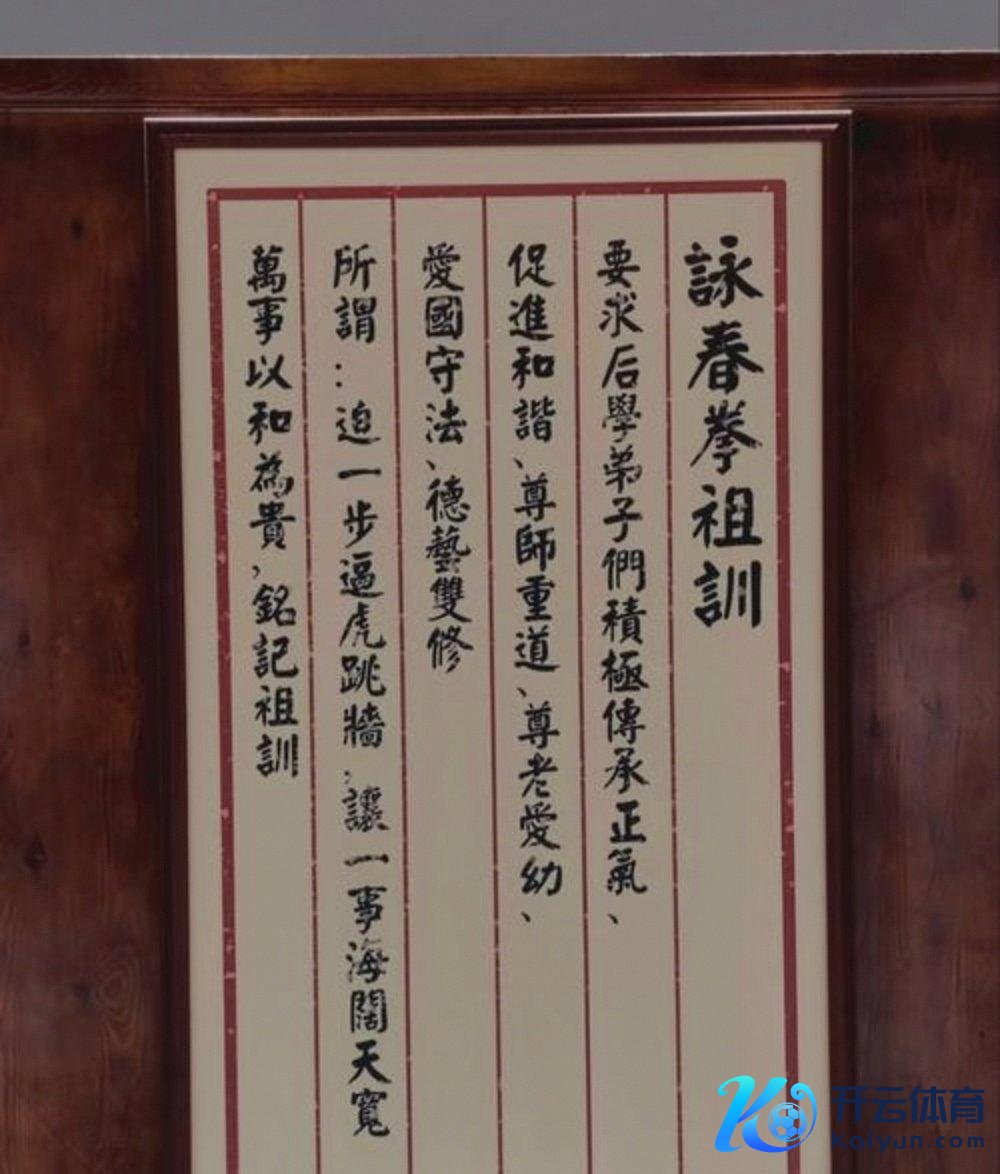 詠春拳祖訓
要求后學弟子們積極傳承正氣、
促進和諧、尊師重道、尊老愛幼、
愛國守法、德藝雙修
所謂：迫一步逼虎跳牆，讓一事海闊天寬
萬事以和為貴，銘記祖訓
开云体育
kaiyun.com